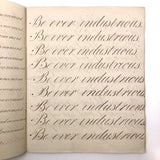 Be ever industrious.
Be ever industrious.
Be ever industrious.
Be ever industrious.
Be ever industrious.
Be ever industrious.
Be ever industrious.
Be ever industrious.